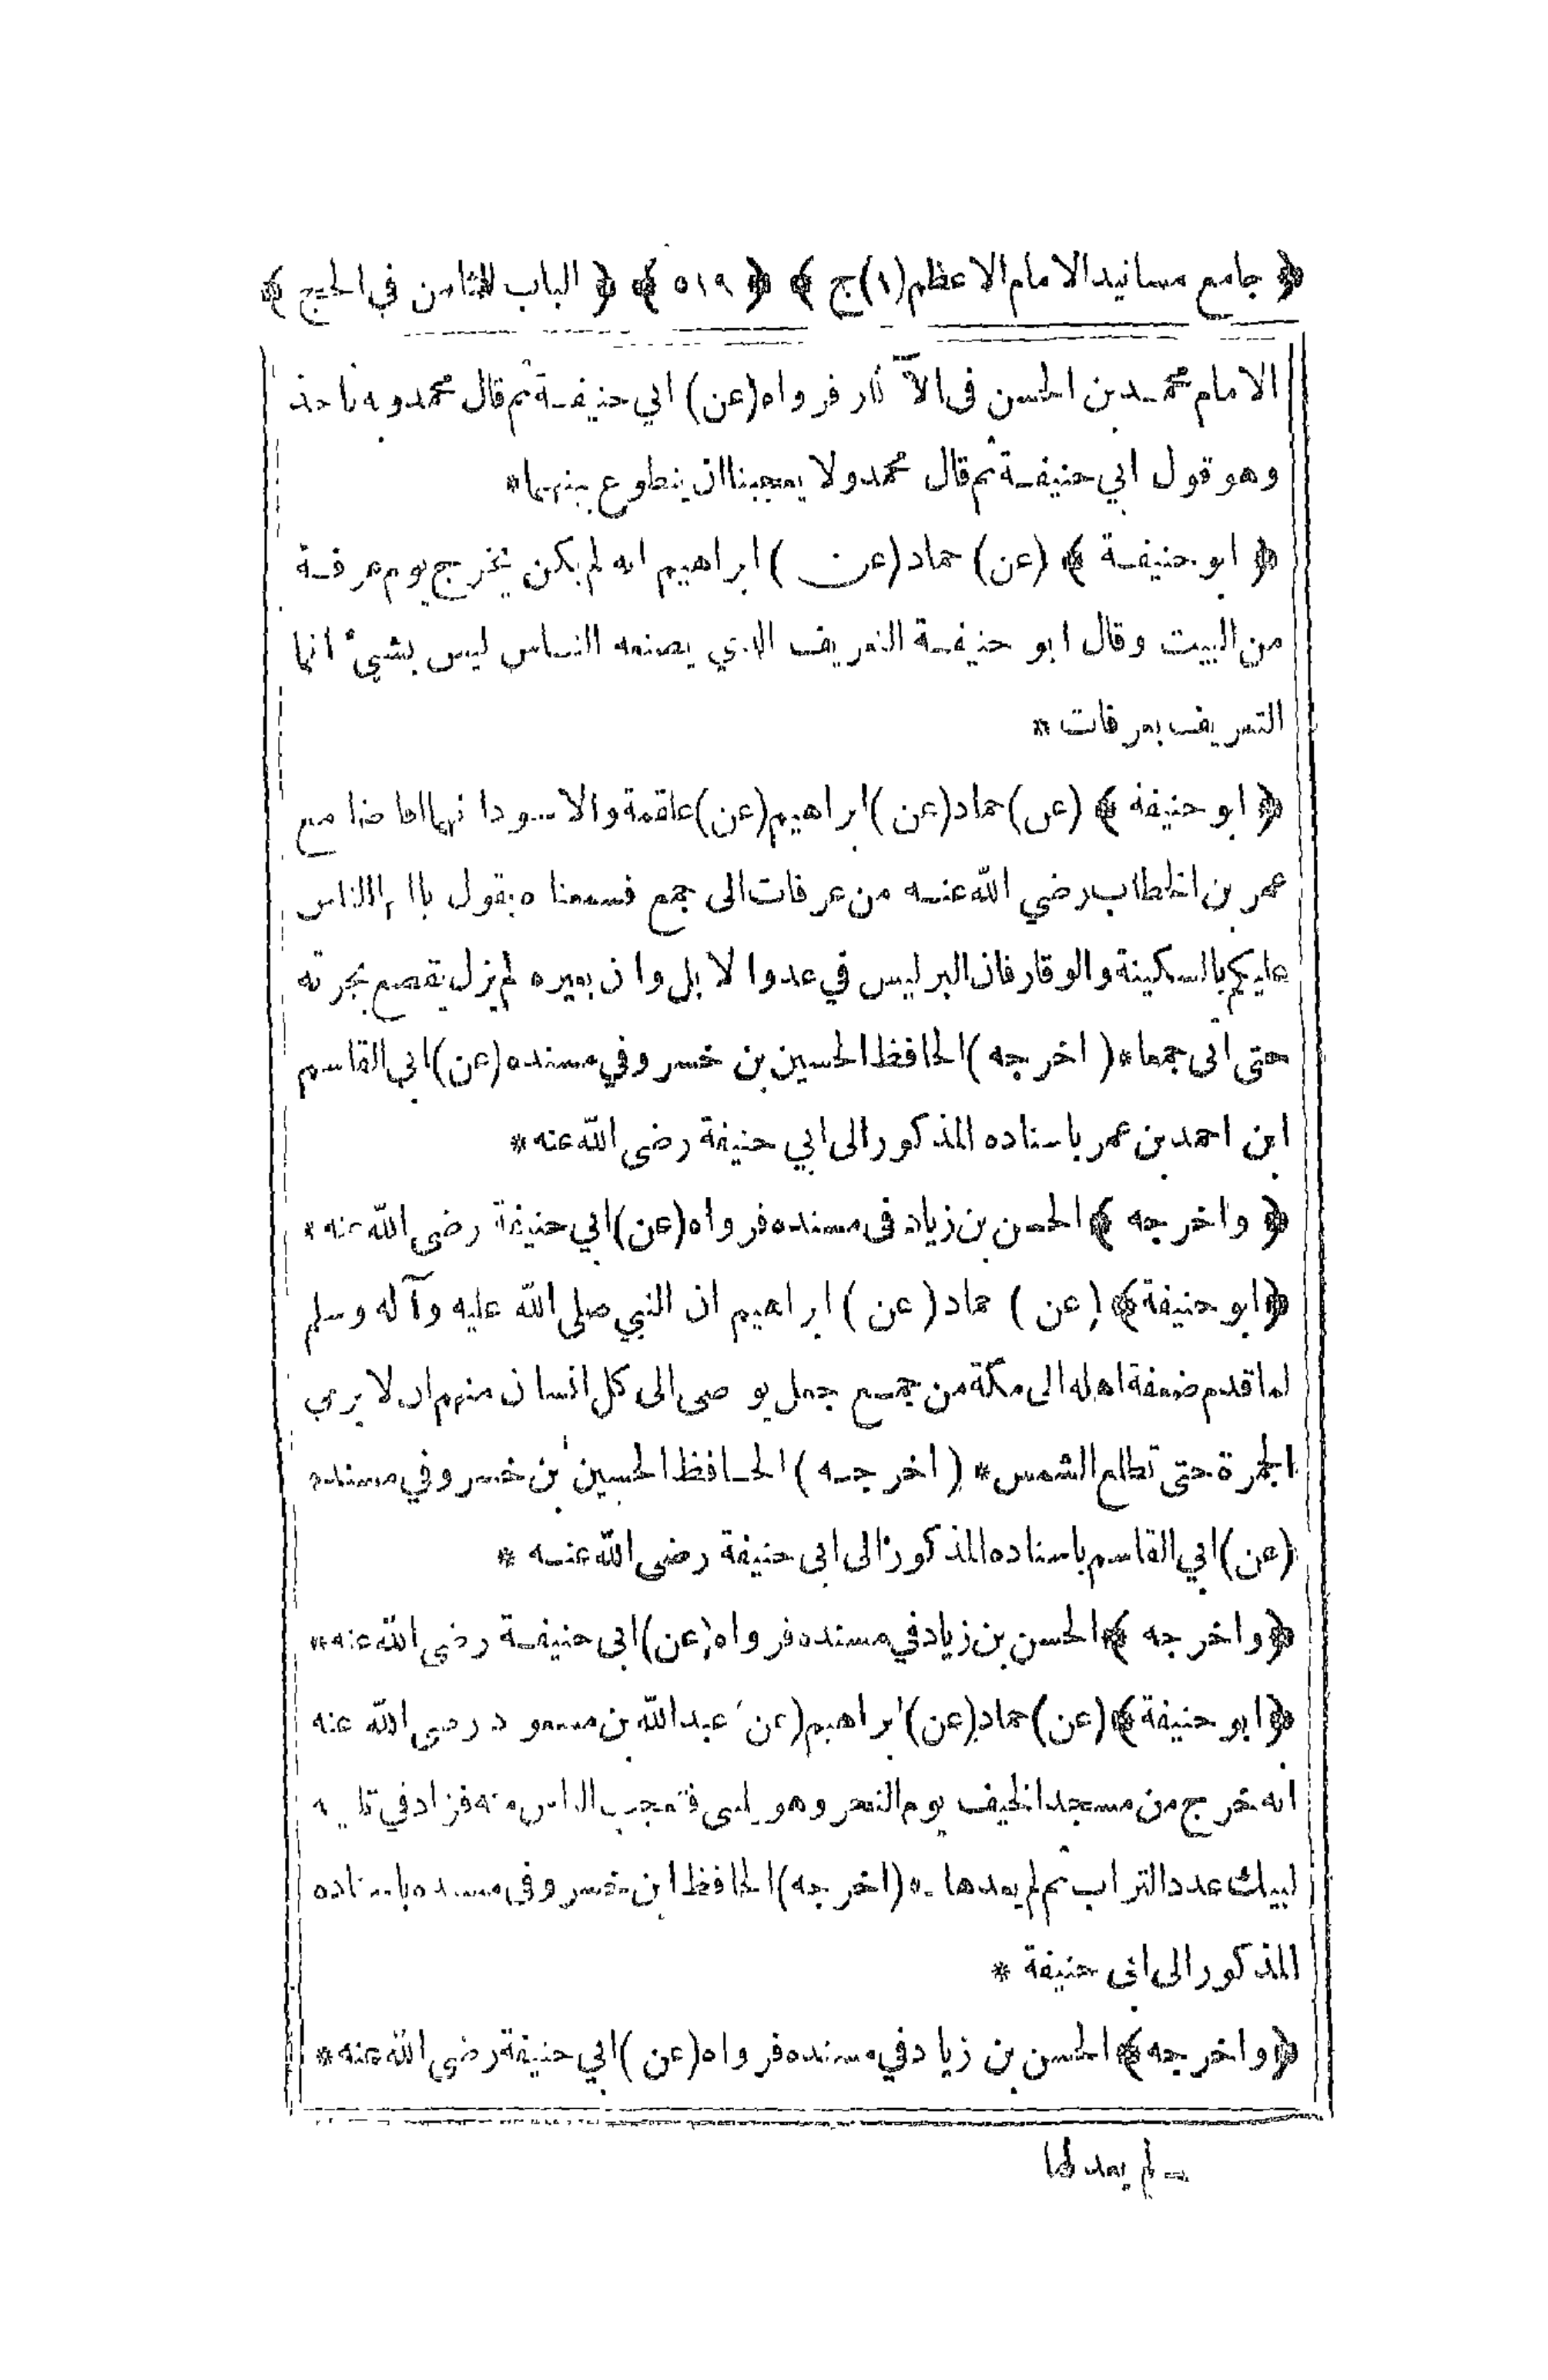 ﴿ جامع مسانيد الامام الاعظم (١) ج ﴾ ﴿ ٥١٩ ﴾ ﴿ الباب الثامن في الحج ﴾
الامام محمد بن الحسن فى الآثار فرواه (عن) ابي حنيفة ثم قال محمد وبه ناخذ
وهو قول ابي حنيفة ثم قال محمد ولا يعجبنا ان يتطوع بينهما*
﴿ ابو حنيفة ﴾ (عن) حماد (عن) ابراهيم انه لم يكن يخرج يوم عرفة
من البيت وقال ابو حنيفة التعريف الذي يصنعه الناس ليس بشيء انما
التعريف بعرفات *
﴿ ابو حنيفة ﴾ (عن) حماد (عن) ابراهيم (عن) علقمة والاسود انهما افاضا مع
عمر بن الخطاب رضي الله عنه من عرفات الى جمع فسمعناه يقول يا ايها الناس
عليكم بالسكينة والوقار فان البر ليس في عدو الابل وان بعيره لم يزل يقصع بجرته
حتى اتى جمعا * (اخرجه) الحافظ الحسين بن خسرو في مسنده (عن) ابي القاسم
ابن احمد بن عمر باسناده المذكور الى ابي حنيفة رضى الله عنه *
﴿ واخرجه ﴾ الحسن بن زياد فى مسنده فرواه (عن) ابي حنيفة رضى الله عنه *
﴿ ابو حنيفة ﴾ (عن) حماد (عن) ابراهيم ان النبي صلى الله عليه وآله وسلم
لما قدم ضعفة اهله الى مكة من جمع جعل يوصى الى كل انسان منهم ان لا يرمي
الجمرة حتى تطلع الشمس * (اخرجه) الحافظ الحسين بن خسرو في مسنده
(عن) ابي القاسم باسناده المذكور الى ابى حنيفة رضى الله عنه *
﴿ واخرجه ﴾ الحسن بن زياد في مسنده فرواه (عن) ابى حنيفة رضى الله عنه *
﴿ ابو حنيفة ﴾ (عن) حماد (عن) ابراهيم (عن) عبد الله بن مسعود رضى الله عنه
انه خرج من مسجد الخيف يوم النحر وهو يلبى فتعجب الناس منه فزاد في تلبيته
لبيك عدد التراب ثم لم يعدها - * (اخرجه) الحافظ ابن خسرو فى مسنده باسناده
المذكور الى ابى حنيفة *
﴿ واخرجه ﴾ الحسن بن زياد في مسنده فرواه (عن) ابي حنيفة رضى الله عنه *
- لم يعد لها